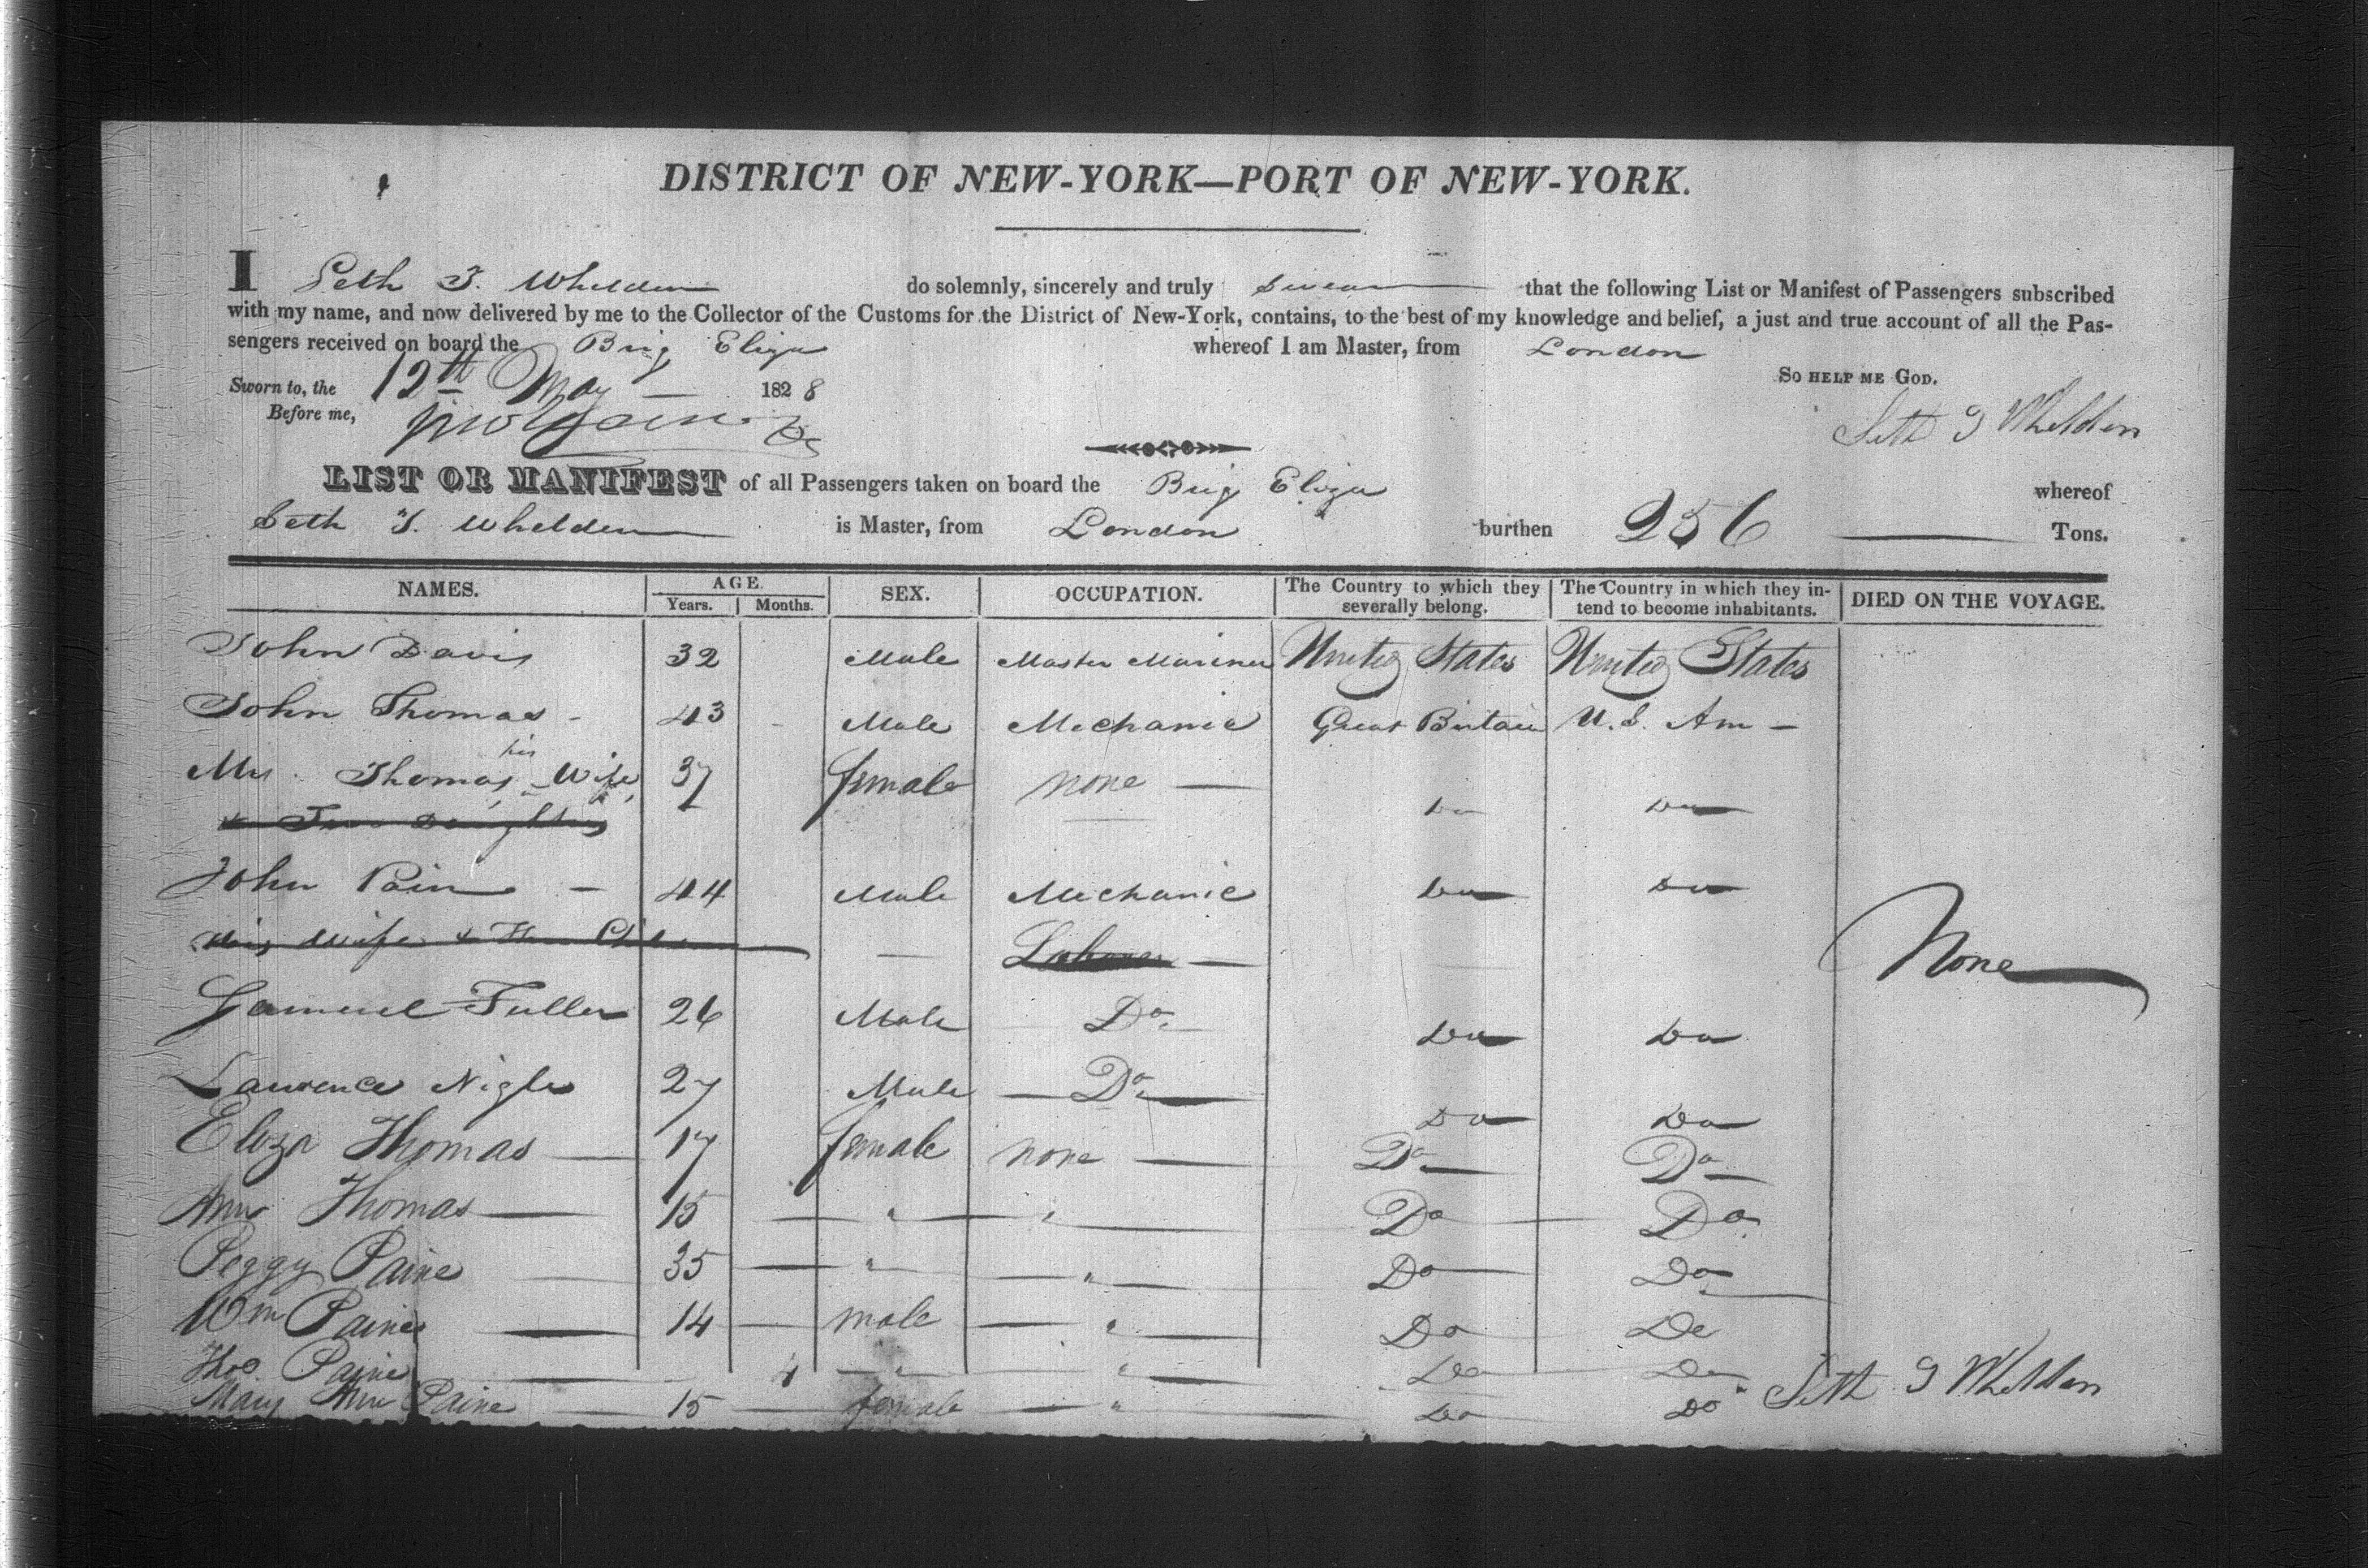 DISTRICT OF NEW-YORK—PORT OF NEW-YORK.
I Seth T. Whelden do solemnly, sincerely and truly swear that the following List or Manifest of Passengers subscribed
with my name, and now delivered by me to the Collector of the Customs for the District of New-York, contains, to the best of my knowledge and belief, a just and true account of all the Pas-
sengers received on board the Brig Eliza whereof I am Master, from London
SO HELP ME GOD.
Sworn to, the 12th May 1828
Before me,
Seth T Whelden
LIST OR MANIFEST of all Passengers taken on board the Brig Eliza whereof
Seth T. Whelden is Master, from London burthen 256 Tons.
NAMES. AGE. Years. Months. SEX. OCCUPATION. The Country to which they severally belong. The Country in which they intend to become inhabitants. DIED ON THE VOYAGE.
John Davis 32 Male Master Mariner United States United States
John Thomas - 43 - Male Mechanic Great Britain U.S. Am -
Mrs. Thomas, his Wife, 37 female none — Do Do
& Two Daughters
John Pain - 44 Male Mechanic Do Do
his wife & — Laborer —
None
Samuel Fuller 26 Male Do Do Do
Lawrence Nigle 27 Male Do Do Do
Eliza Thomas 17 female none Do Do
Ann Thomas 15 " " Do Do
Peggy Paine 35 " " Do Do
Wm Paine 14 male " Do Do
Thos. Paine 4 " " Do Do
Mary Ann Paine 15 female " Do Do
Seth T Whelden